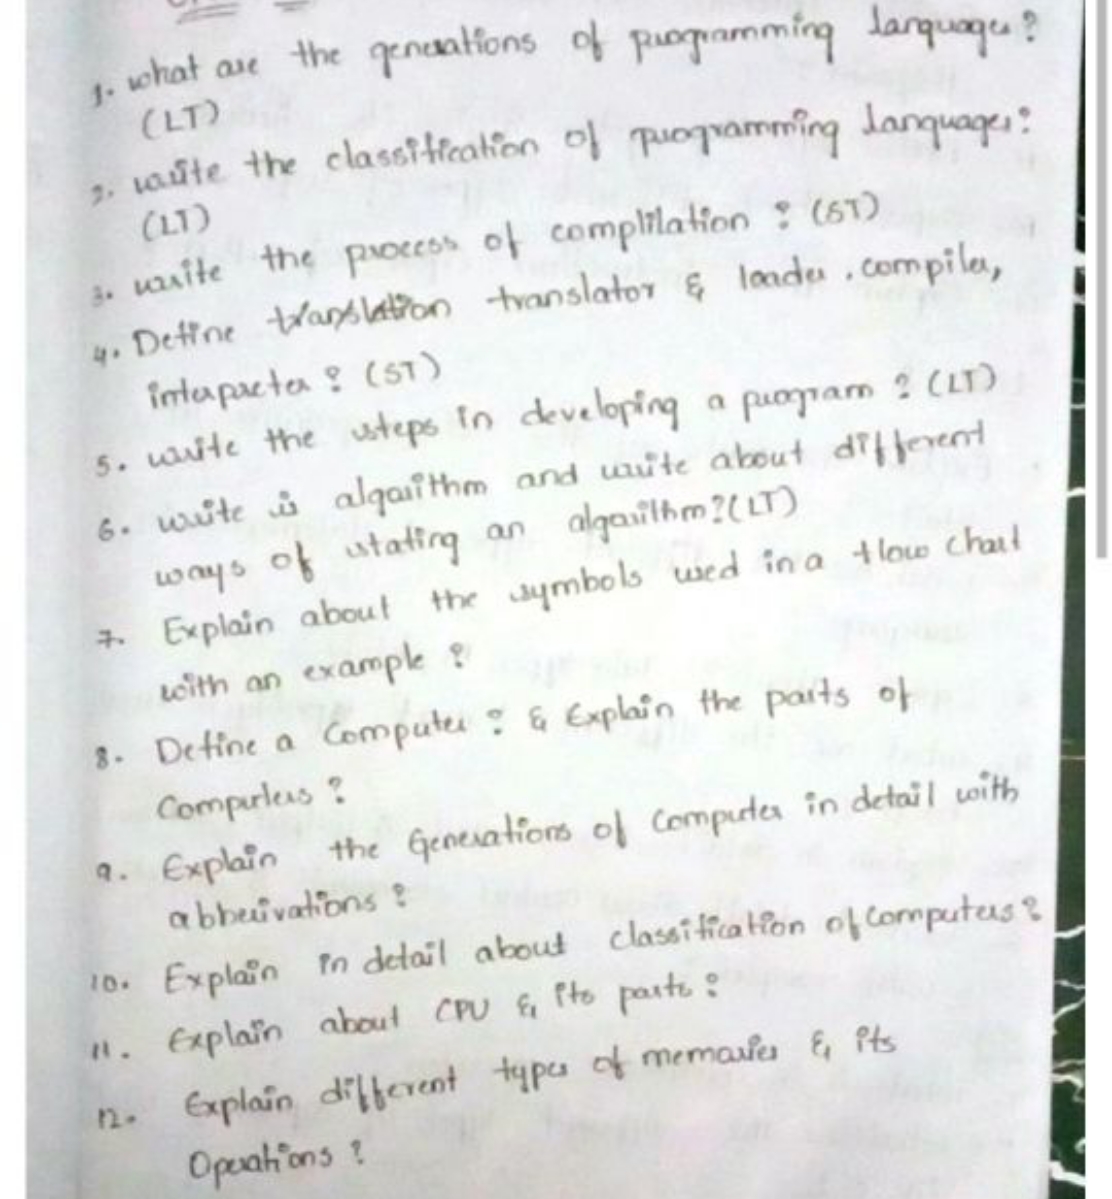 1. what are the generations of programming languages?
(LT)
2. write the classification of programming languages?
(LT)
3. write the process of complilation ? (ST)
4. Define translation translator & loader, compiler,
interpreter ? (ST)
5. write the steps in developing a program ? (LT)
6. write is algorithm and write about different
ways of stating an algorithm? (LT)
7. Explain about the symbols used in a flow chart
with an example ?
8. Define a Computer ? & Explain the parts of
Computers ?
9. Explain the Generations of Computer in detail with
abberivations ?
10. Explain in detail about classification of Computers ?
11. Explain about CPU & its parts ?
12. Explain different types of memories & its
Operations ?